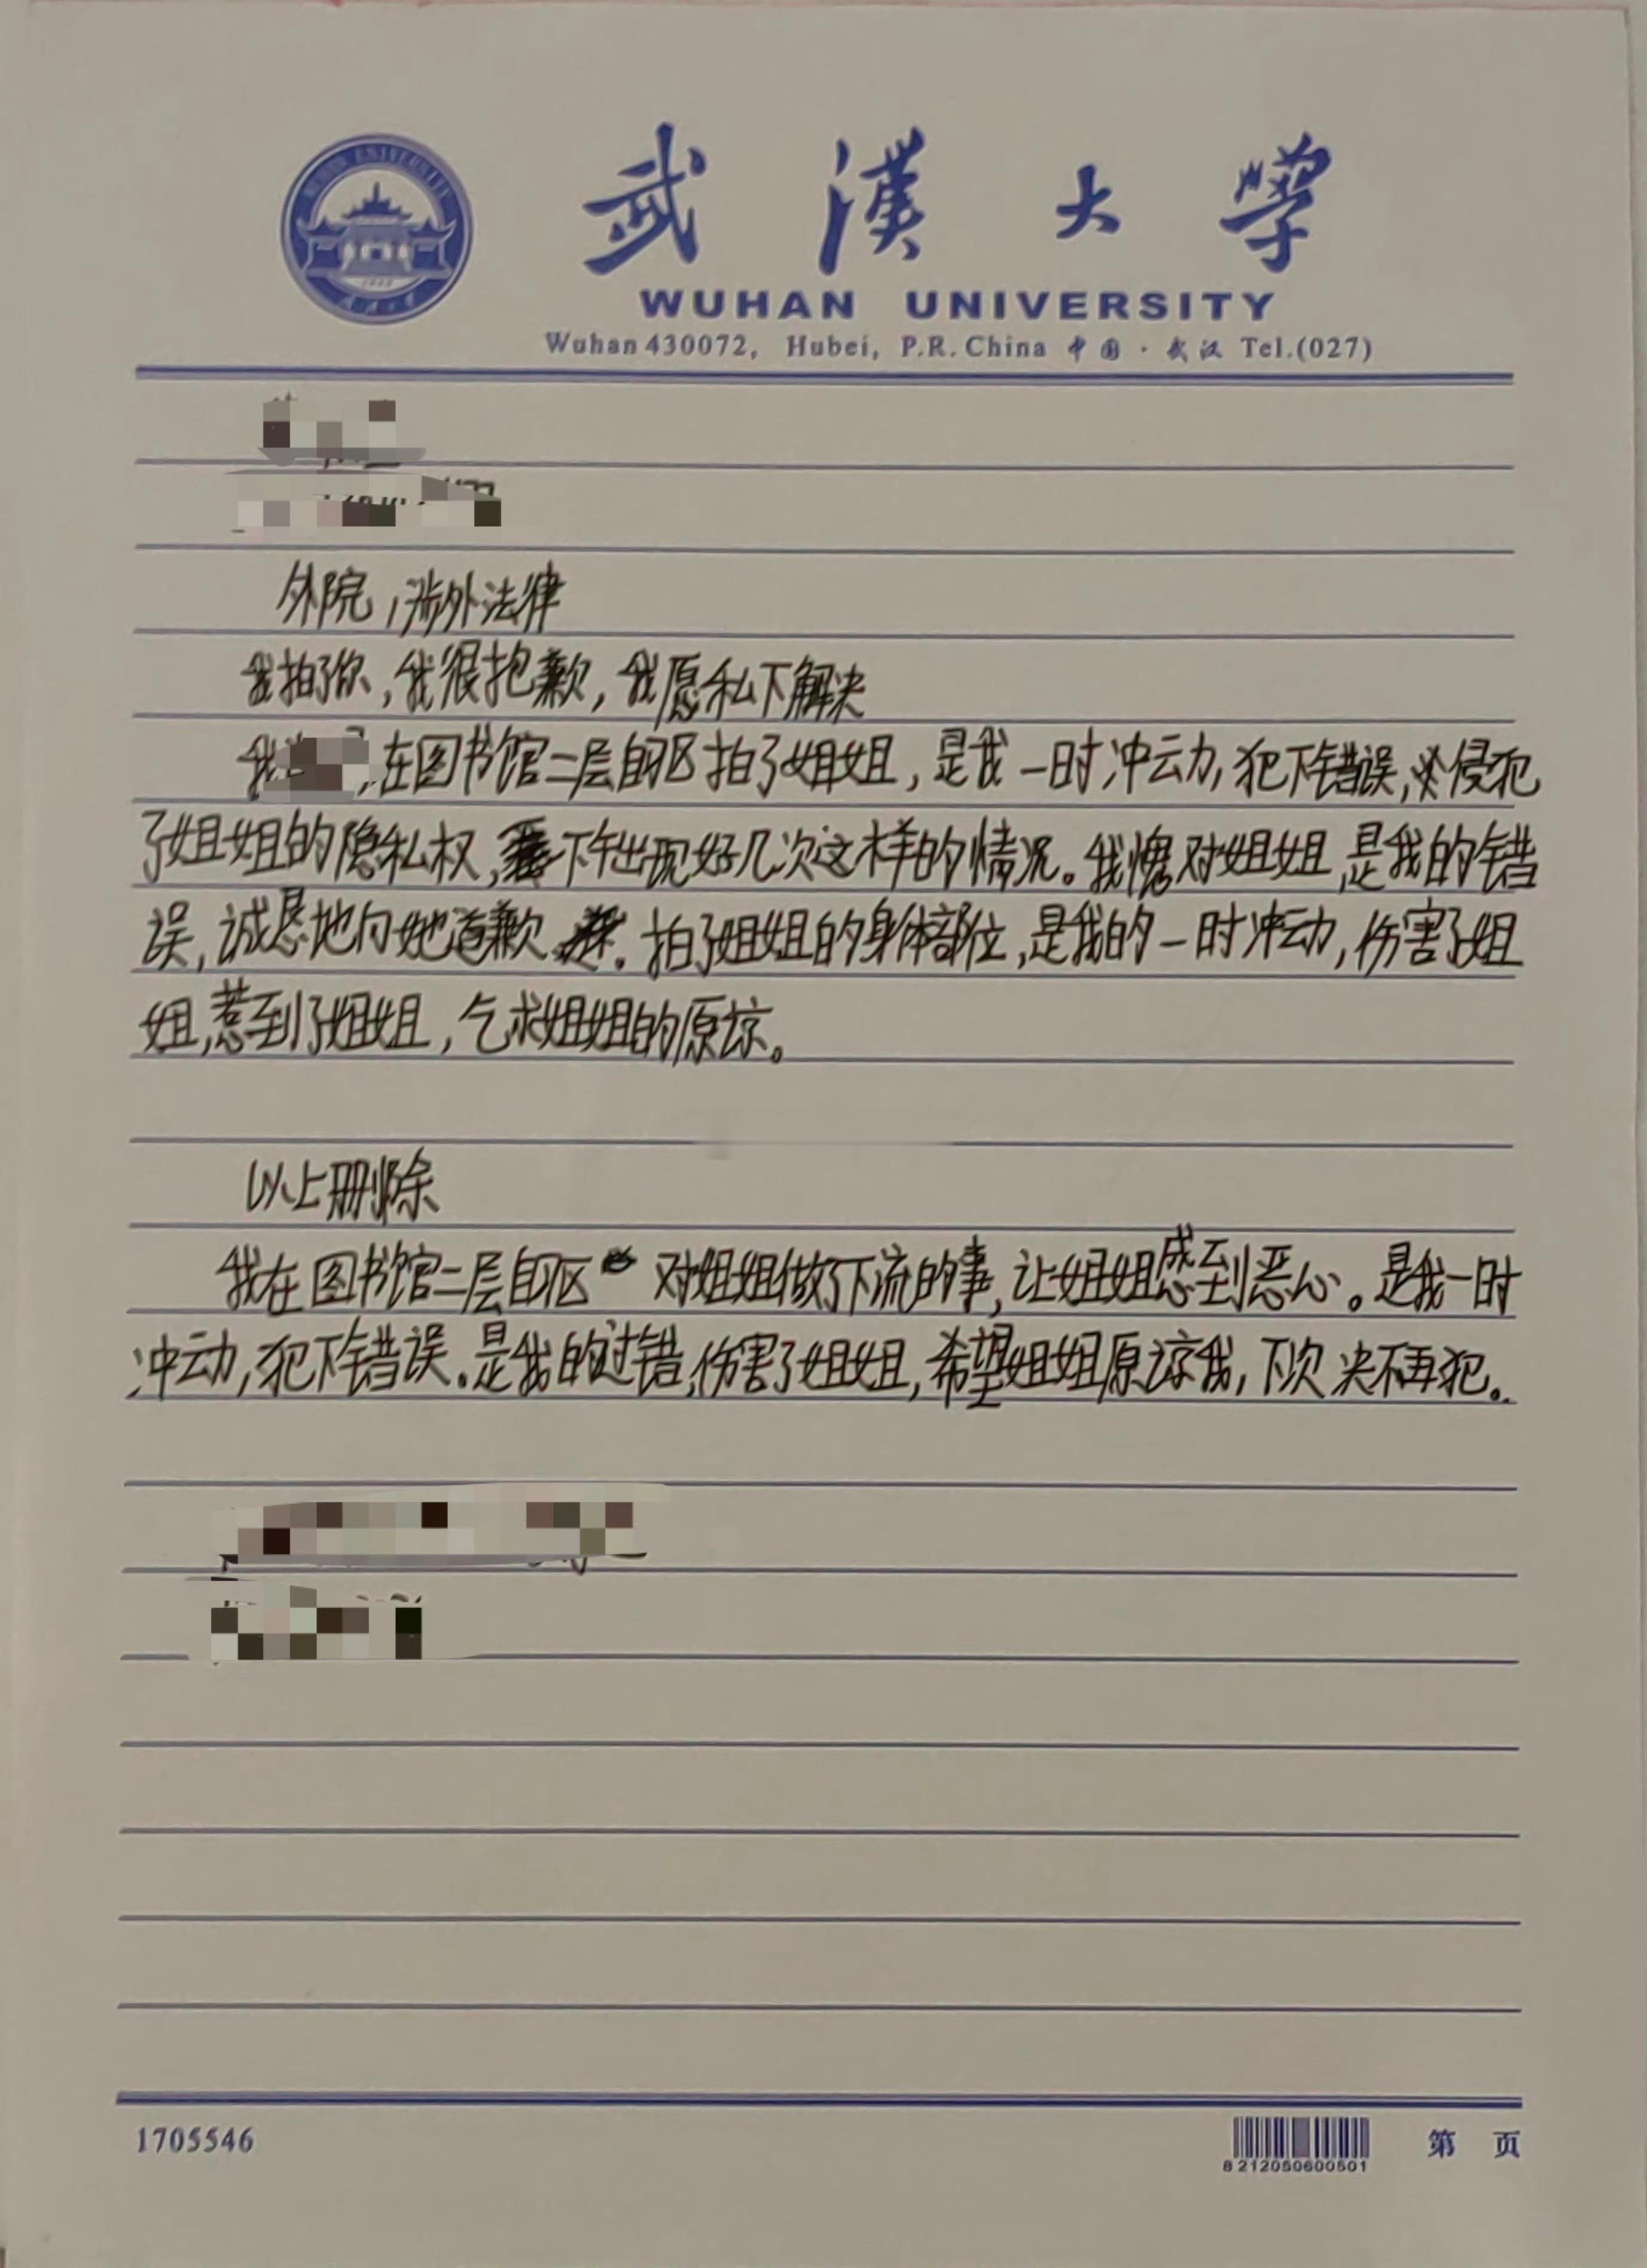 武漢大學
WUHAN UNIVERSITY
Wuhan 430072, Hubei, P.R. China 中国·武汉 Tel.(027)
外院,涉外法律
我拍了你,我很抱歉,我愿私下解决
我 ,在图书馆二层自习区拍了姐姐,是我一时冲动,犯下错误,侵犯
了姐姐的隐私权,下午出现好几次这样的情况。我愧对姐姐,是我的错
误,诚恳地向她道歉。拍了姐姐的身体部位,是我的一时冲动,伤害了姐
姐,惹到了姐姐,乞求姐姐的原谅。
以上删除
我在图书馆二层自习区对姐姐做了下流的事,让姐姐感到恶心。是我一时
冲动,犯下错误。是我的过错,伤害了姐姐,希望姐姐原谅我,下次决不再犯。
1705546
8212050600501
第 页